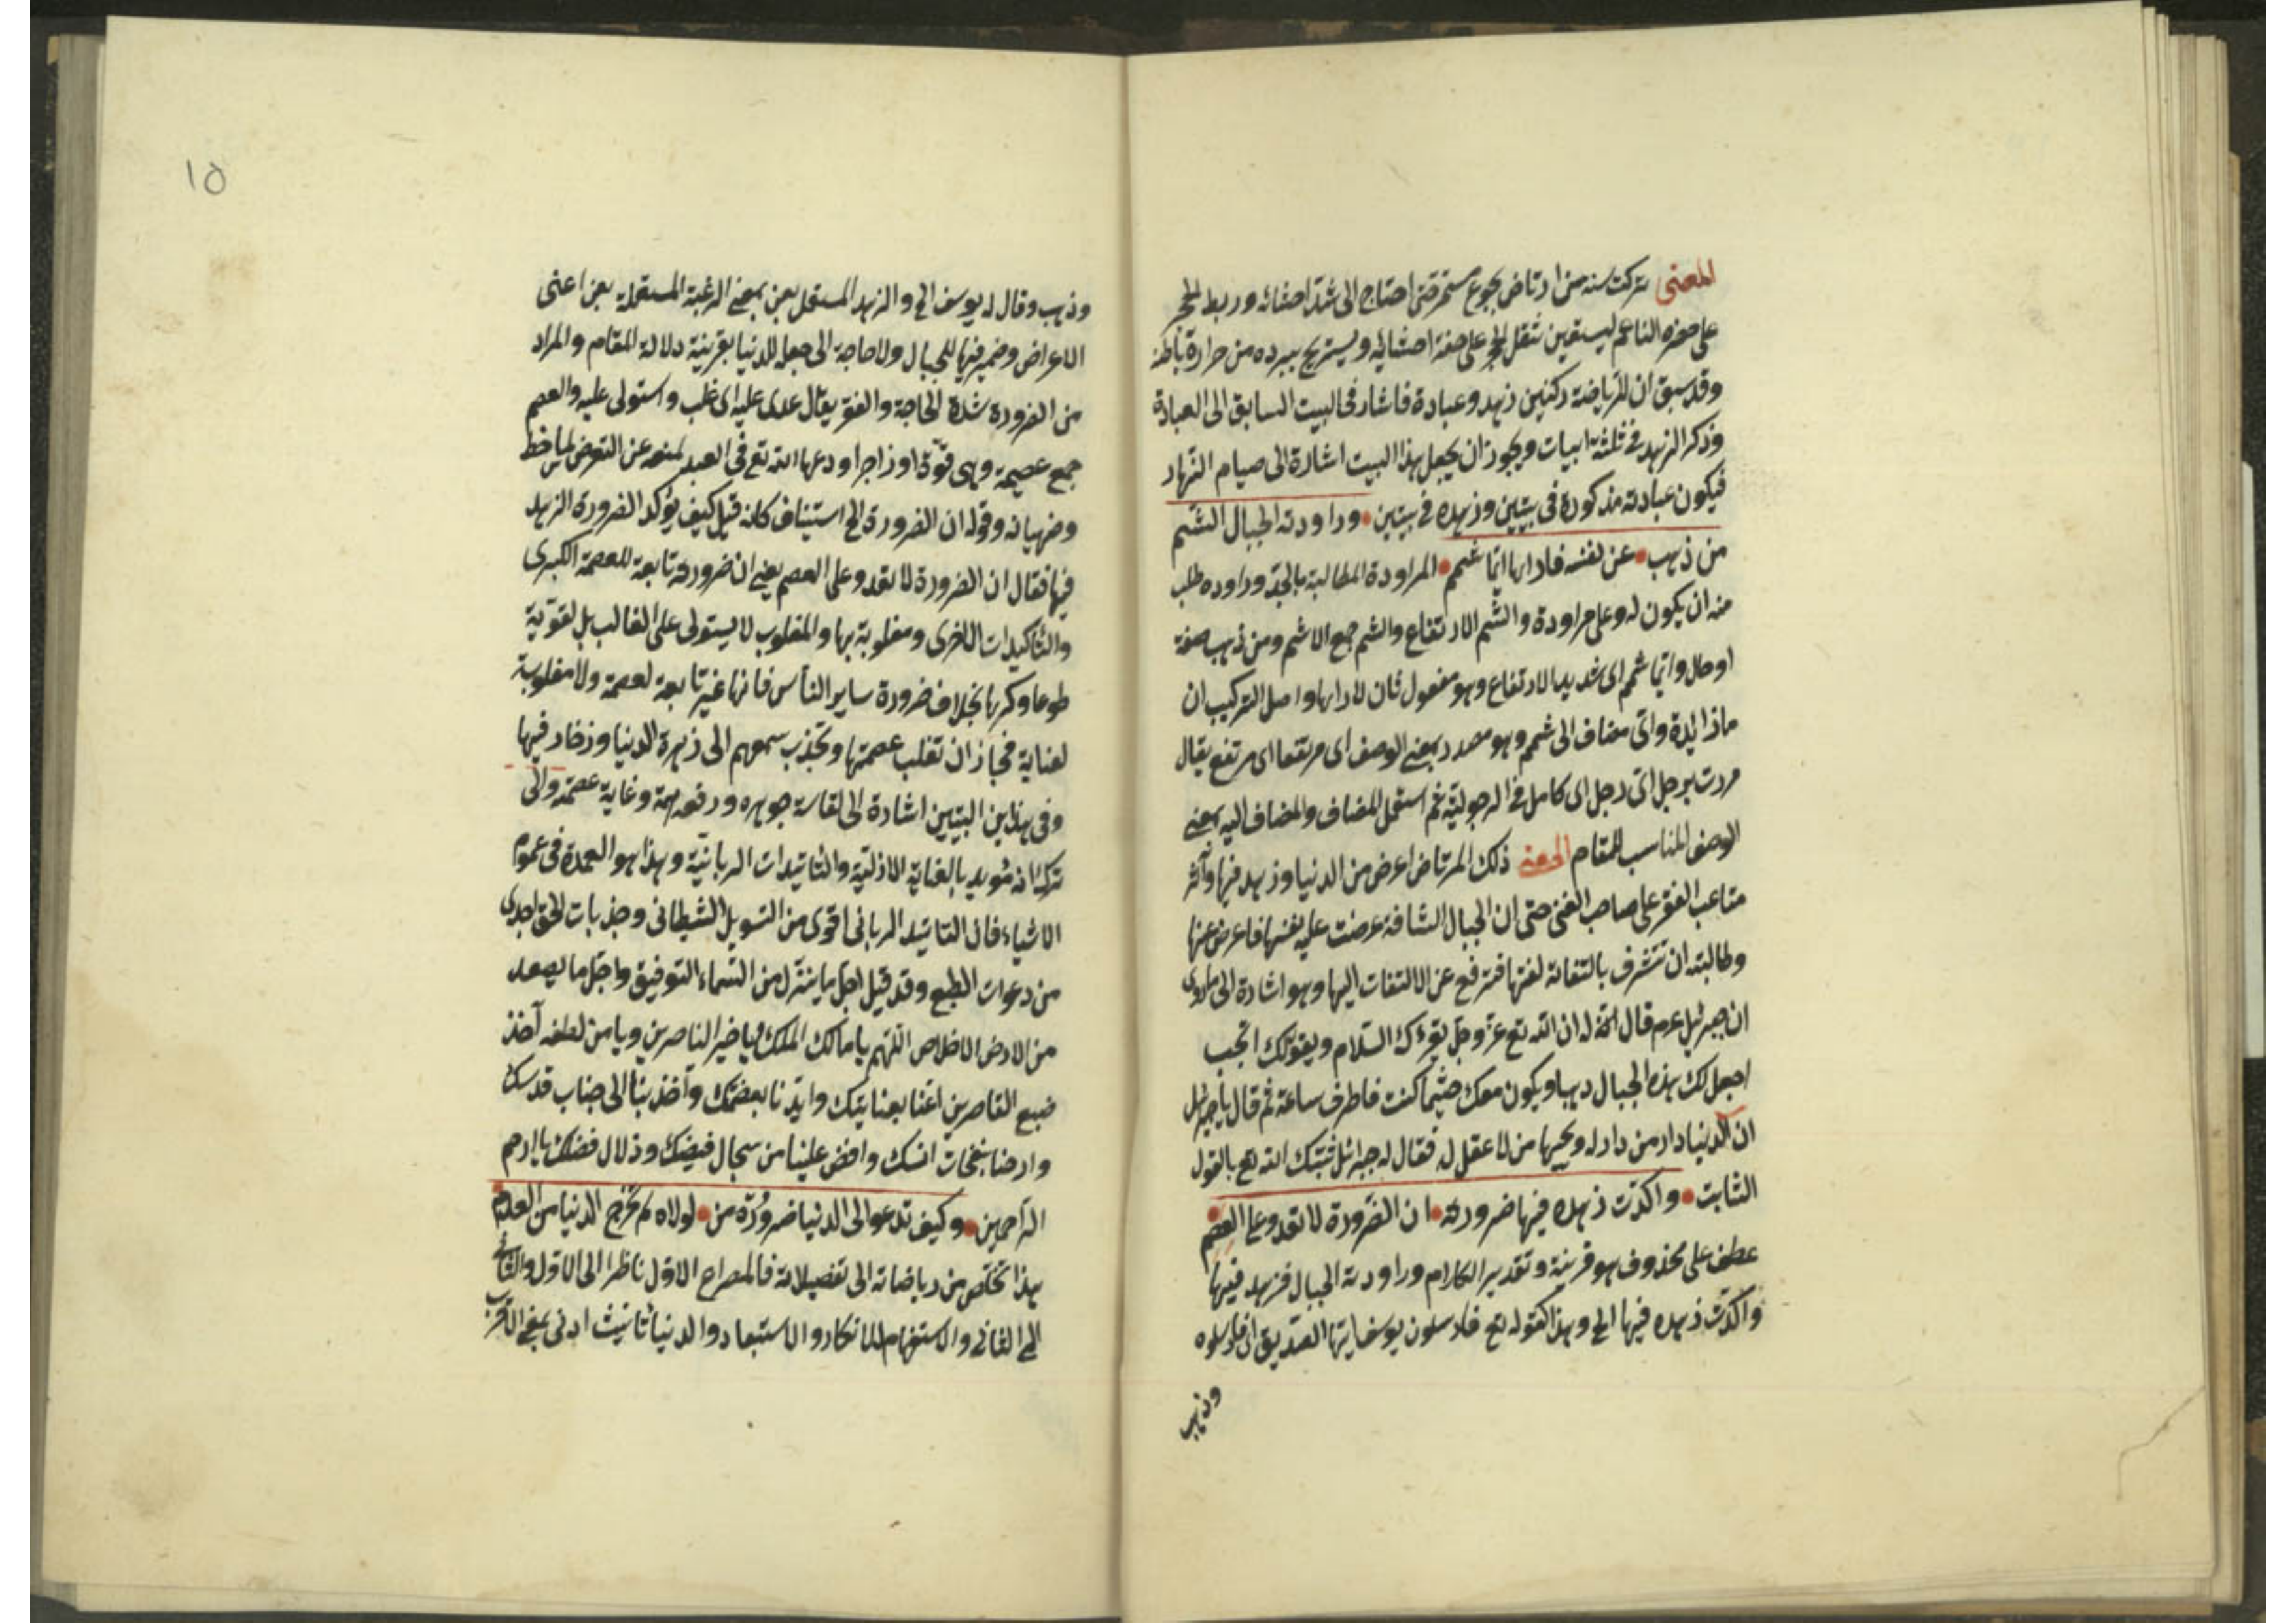 المعنى تركت سنه من ارتاض بجوع مستمر حتى احتاج الى شد احشائه وربط الحجر
على خصره الناعم ليستعين بثقل الحجر على خفة احشائه ويستريح ببرده من حرارة باطنه
وقد سبق ان للرياضة ركنين زهد وعبادة فاشار في البيت السابق الى العبادة
وذكر الزهد في ثلثة ابيات ويجوز ان يجعل هذا البيت اشارة الى صيام النهار
فيكون عبادته مذكورة في بيتين وزهده في بيتين وراودته الجبال الشم
من ذهب عن نفسه فاراها ايما شمم المراودة المطالبة بالجد وراوده طلب
منه ان يكون له وعلى مراودة والشم الارتفاع والشم جمع الاشم ومن ذهب صفة
او حال وايما شمم اى شديد الارتفاع وهو مفعول ثان لاراها واصل التركيب ان
ما زايدة واى مضاف الى شمم وهو مصدر بمعنى الوصف اى مرتفعا اى مرتفع يقال
مررت برجل اى رجل اى كامل في الرجولية ثم استعمل المضاف والمضاف اليه بمعنى
الوصف المناسب للمقام المعنى ذلك المرتاض اعرض من الدنيا وزهد فيها وآثر
متاعب الفقر على صاحب الغنى حتى ان الجبال الشافة عرضت عليه نفسها فاعرض عنها
وطالبته ان تتشرف بالتفاته لفتها فترفع عن الالتفات اليها وهو اشارة الى ما روى
ان جبرئيل عم قال له ان الله تع عز وجل يقرءك السلام ويقول لك اتحب
اجعل لك هذه الجبال ذهبا ويكون معك حيثما كنت فاطرف ساعة ثم قال يا جبرئيل
ان الدنيا دار من دار له ويجمعها من لا عقل له فقال له جبرائل ثبتك الله تع بالقول
الثابت واكدت زهده فيها ضرورته ان الضرورة لا تعدو على العصم
عطف على محذوف هو قرينة وتقدير الكلام وراودته الجبال فزهد فيها
واكدت زهده فيها الخ وهذا كقوله تع فارسلون يوسف ايها الصديق اى فارسلوه
وذهب
وذهب وقال له يوسف الخ والزهد المستعمل بعن بمعنى الرغبة المستعملة بعن اعنى
الاعراض وضمير فيها للجبال ولا حاجة الى جعله للدنيا بقرينة دلالة المقام والمراد
من الضرورة شدة الحاجة والفقر يقال عدى عليه اى غلب واستولى عليه والعصم
جمع عصمة وهى قوة او زاجر اودعها الله تع في العبد لمنعه عن التعرض
وقوله ان الضرورة الخ استيناف كانه قيل كيف يؤكد الضرورة الزهد
فيها فقال ان الضرورة لا تعدو على العصم يعنى ان ضرورته تابعة للعصمة الكبرى
والتأكيدات الاخرى ومغلوبة بها والمغلوب لا يستولى على الغالب بل لقوية
طوعا وكرها بخلاف ضرورة ساير الناس فانها غير تابعة لعصمة ولا مغلوبة
لعناية فجاز ان تغلب عصمتها وتجذب سمعهم الى زهرة الدنيا وزخارفيها
وفى هذين البيتين اشارة الى لقاسة جوهره ورفعة همة وغاية عصمة والى
تركه انه مؤيد بالعناية الازلية والتأييدات الربانية وهذا هو العمدة في عموم
الاشياء فان التائيد الربانى اقوى من التسويل الشيطانى وجذبات الحق اجدى
من دعوات الطبع وقد قيل اجل ما ينزل من السماء التوفيق واجل ما يصعد
من الارض الاخلاص اللهم يا مالك الملك ويا خير الناصرين ويا من لطفه آخذ
ضبع القاصرين اعنا بعنايتك وايدنا بعصمتك وآخذ بنا الى جناب قدسك
وارحنا بنفحات انسك وافض علينا من سجال فيضك وزلال فضلك يا ارحم
الراحمين وكيف تدعو الى الدنيا ضرورة من لولاه لم تخرج الدنيا من العدم
هذا تخلص من رياضاته الى تفضيلاته فالمصراع الاول ناظر الى الاول والثانى
الى الثانى والاستفهام للانكار والاستبعاد والدنيا تانيث ادنى بمعنى الاقرب
١٥